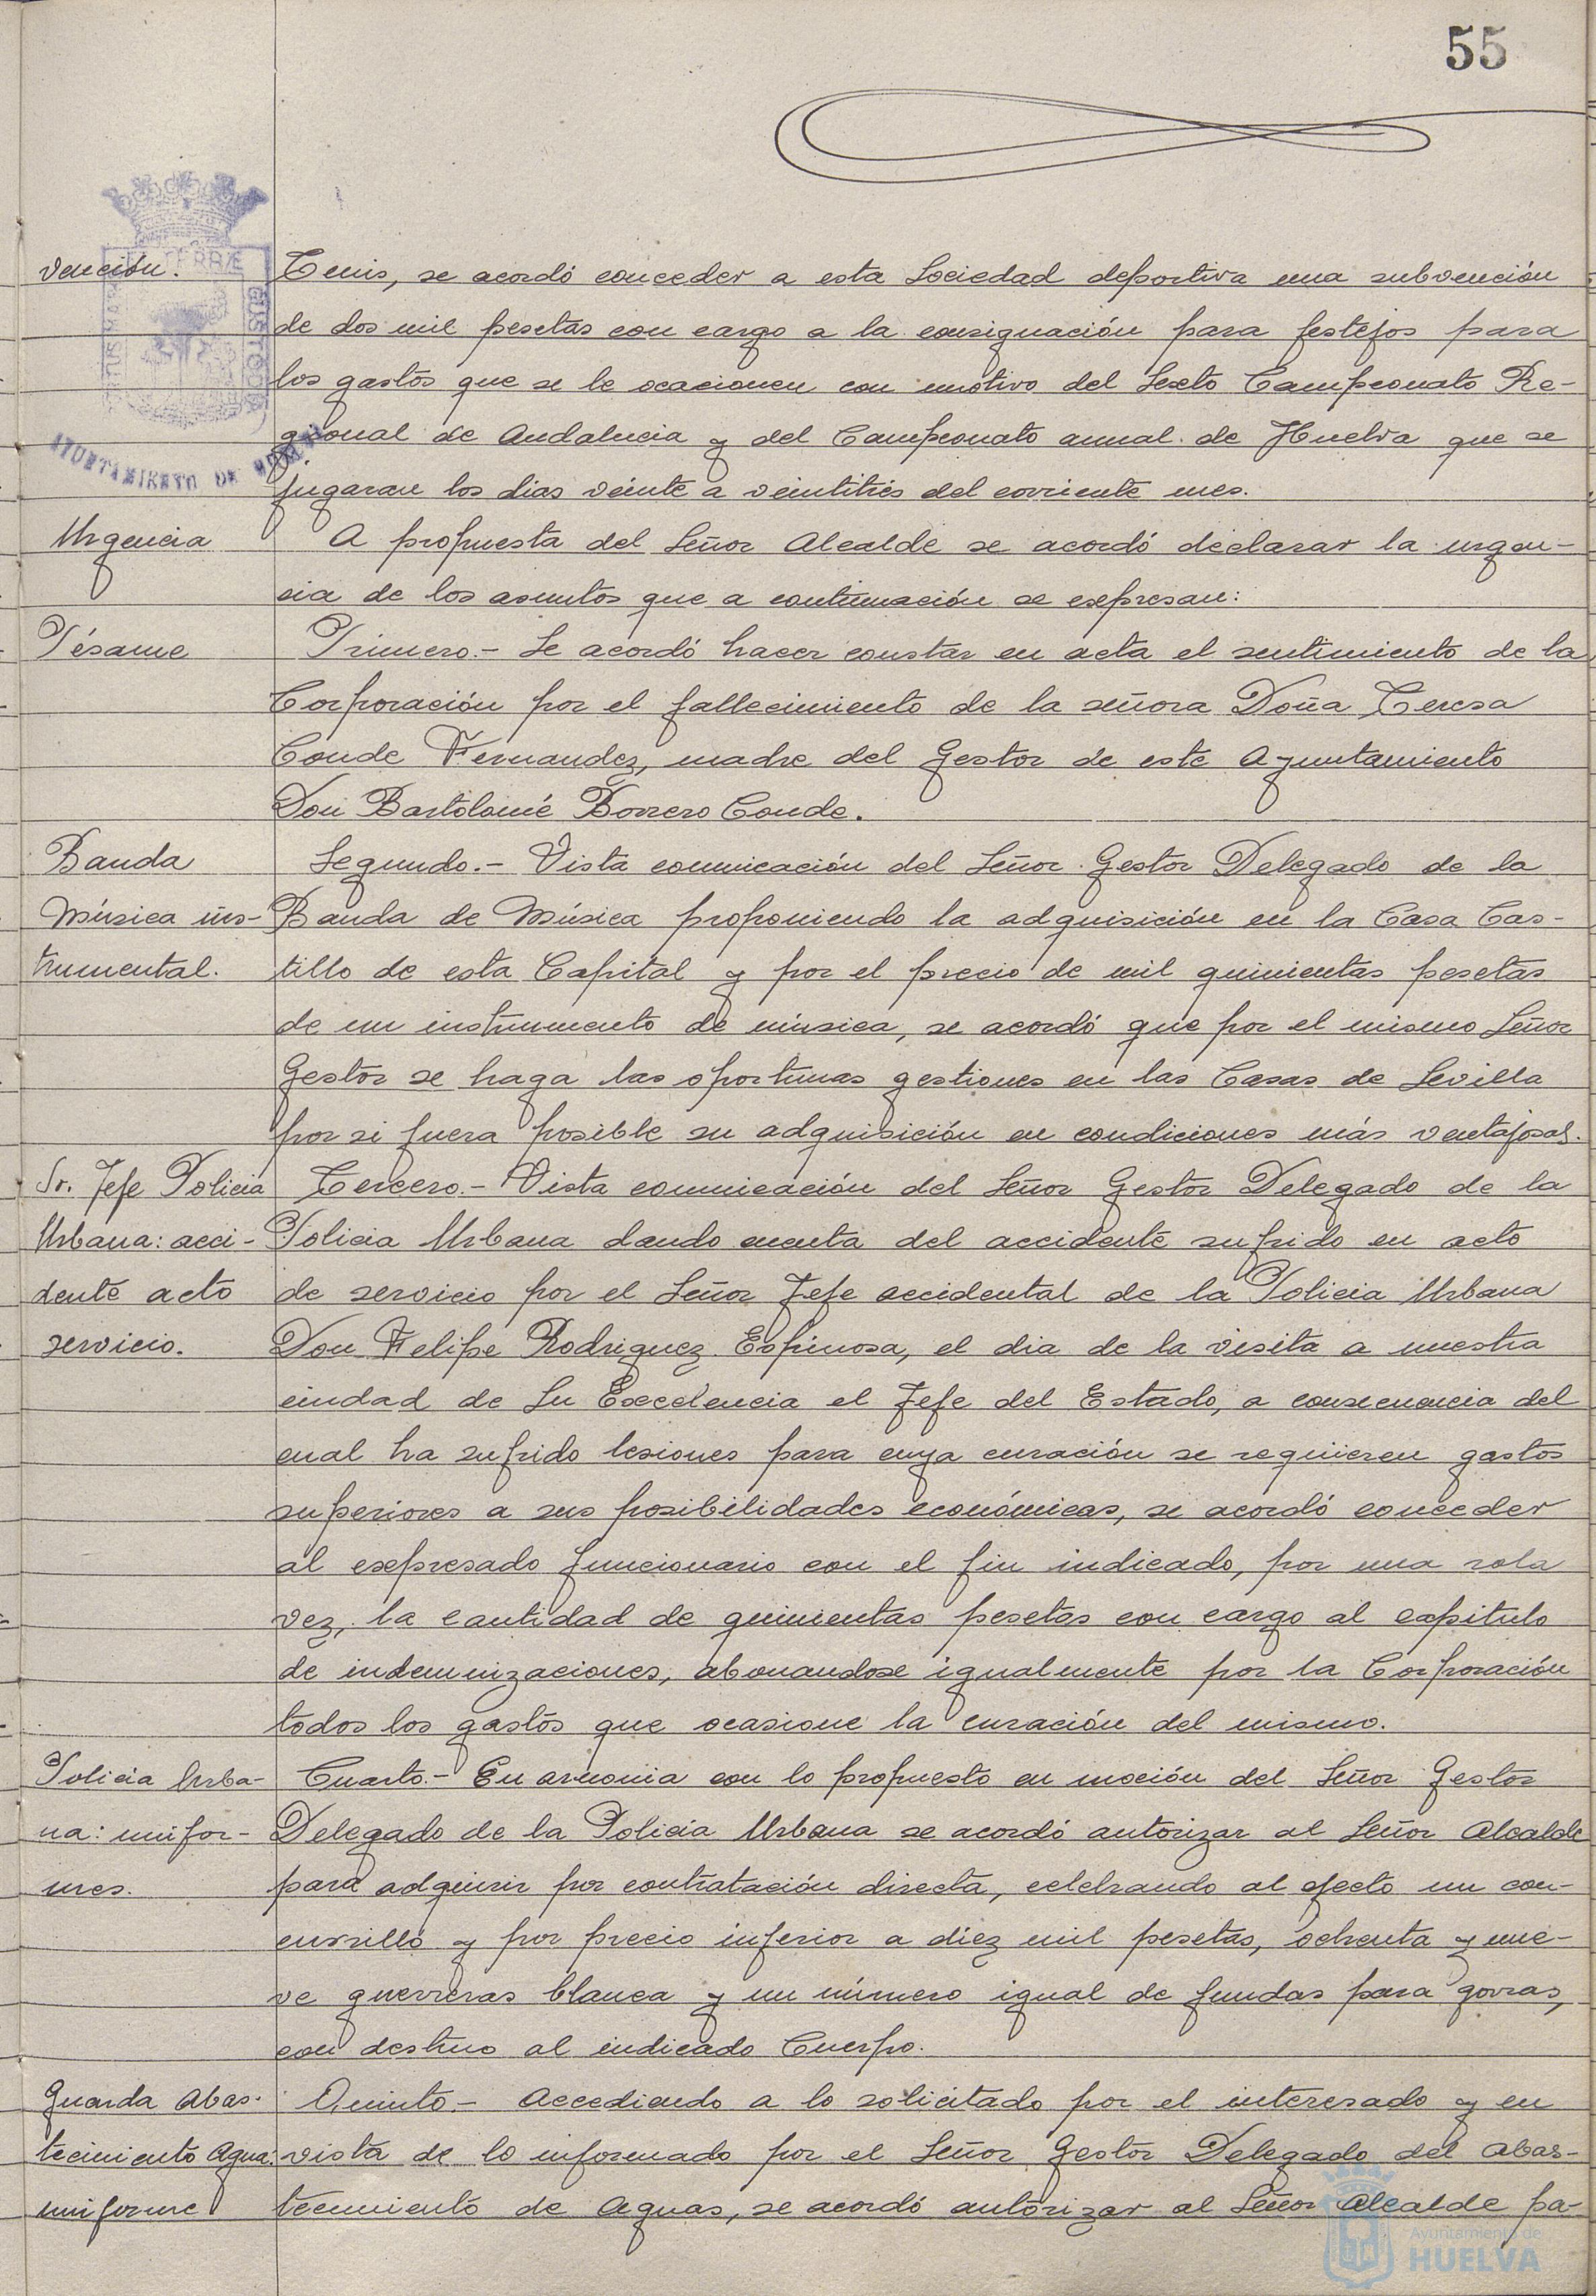 55
vención. Tenis, se acordó conceder a esta Sociedad deportiva una subvención
de dos mil pesetas con cargo a la consignación para festejos para
los gastos que se le ocacionen con motivo del Sexto Campeonato Re-
gional de Andalucia y del Campeonato annal de Huelva que se
jugaran los dias veinte a veintitrés del corriente mes.
AYUNTAMIENTO DE HUELVA
Urgencia A propuesta del Señor Alcalde se acordó declarar la urgen-
cia de los asuntos que a continuación se expresan:
Pésame Primero.- Se acordó hacer constar en acta el sentimiento de la
Corporación por el fallecimiento de la señora Doña Teresa
Conde Fernandez, madre del Gestor de este Ayuntamiento
Don Bartolomé Borrero Conde.
Banda Segundo.- Vista comunicación del Señor Gestor Delegado de la
Música ins- Banda de Música proponiendo la adquisición en la Casa Cas-
trumental. tillo de esta Capital y por el precio de mil quinientas pesetas
de un instrumento de música, se acordó que por el mismo Señor
Gestor se haga las oportunas gestiones en las Casas de Sevilla
por si fuera posible su adquisición en condiciones más ventajosas.
Sr. Jefe Policia Tercero.- Vista comunicación del Señor Gestor Delegado de la
Urbana: acci- Policia Urbana dando cuenta del accidente sufrido en acto
dente acto de servicio por el Señor Jefe accidental de la Policia Urbana
servicio. Don Felipe Rodriguez Espinosa, el dia de la visita a nuestra
ciudad de Su Excelencia el Jefe del Estado, a consecuencia del
cual ha sufrido lesiones para cuya curación se requieren gastos
superiores a sus posibilidades económicas, se acordó conceder
al expresado funcionario con el fin indicado, por una sola
vez, la cantidad de quinientas pesetas con cargo al capitulo
de indemnizaciones, abonandose igualmente por la Corporación
todos los gastos que ocasione la curación del mismo.
Policia Urba- Cuarto.- En armonia con lo propuesto en moción del Señor Gestor
na: unifor- Delegado de la Policia Urbana se acordó autorizar al Señor Alcalde
mes. para adquirir por contratación directa, celebrando al efecto un con-
cursillo y por precio inferior a diez mil pesetas, ochenta y nue-
ve guerreras blanca y un número igual de fundas para gorras,
con destino al indicado Cuerpo.
Guarda Abas- Quinto.- Accediendo a lo solicitado por el interesado y en
tecimiento Agua: vista de lo informado por el Señor Gestor Delegado del Abas-
uniforme tecimiento de Aguas, se acordó autorizar al Señor Alcalde pa-
Ayuntamiento de
HUELVA